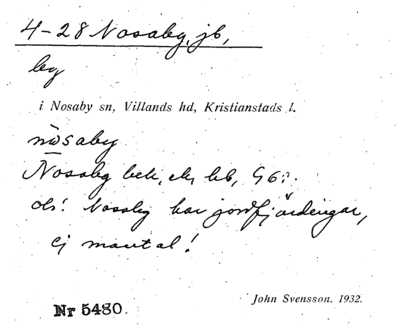 4-28 Nosaby, jb,
by
i Nosaby sn, Villands hd, Kristianstads l.
nosaby
Nosaby
obs! Nosaby har jordfjärdingar,
ej mantal!
John Svensson. 1932.
Nr 5480.